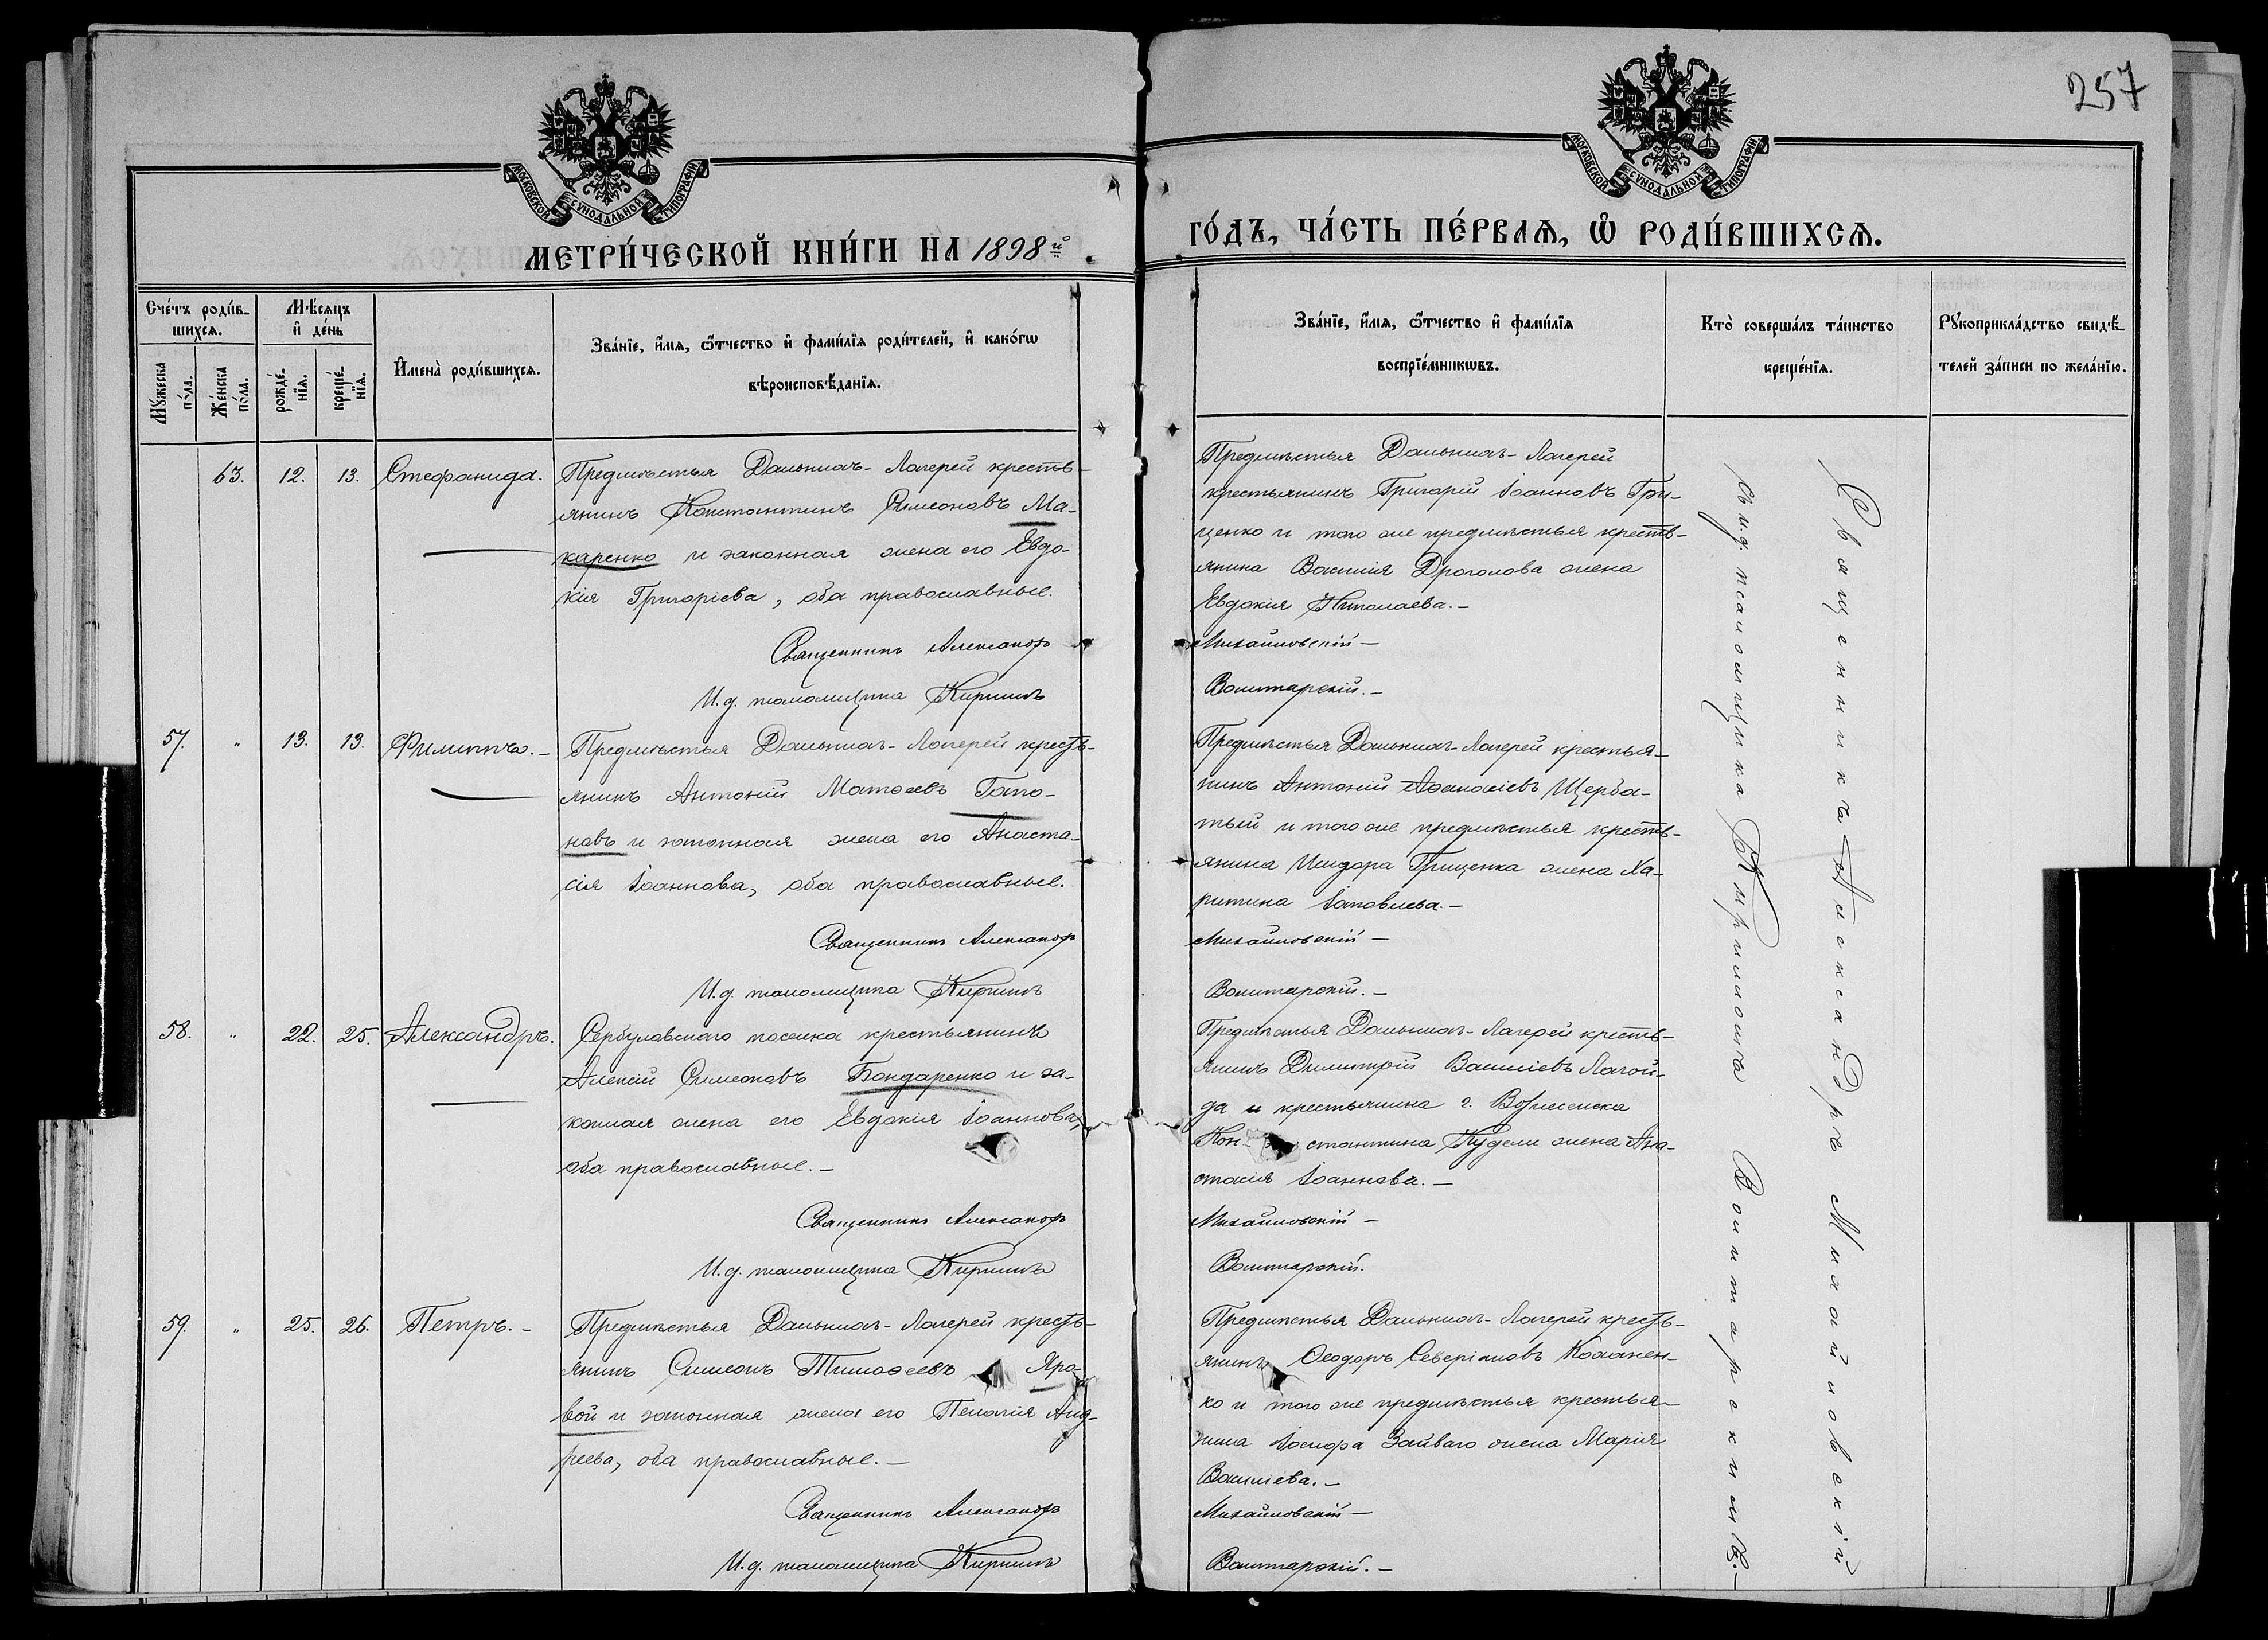 257
МОСКОВСКОЙ СѴНОДАЛЬНОЙ ТИПОГРАФІИ
МОСКОВСКОЙ СѴНОДАЛЬНОЙ ТИПОГРАФІИ
МЕТРИ́ЧЕСКОЙ КНИ́ГИ НА 1898й
ГО́ДЪ, ЧА́СТЬ ПЕ́РВАѦ, Ѡ҆ РОДИ́ВШИХСѦ.
Сче́тъ роди́в-
шихсѧ.
Мѣ́сѧцъ
и҆ де́нь
Мꙋ́жеска
по́ла.
Же́нска
по́ла.
рожде́-
нїѧ.
креще́-
нїѧ.
И҆мена̀ роди́вшихсѧ.
Зва́нїе, и҆́мѧ, ѻ҆́тчество и҆ фами́лїѧ роди́телей, и҆ како́гѡ
вѣроисповѣ́данїѧ.
Зва́нїе, и҆́мѧ, ѻ҆́тчество и҆ фами́лїѧ
воспрїе́мникѡвъ.
Кто̀ соверша́лъ та́инство
креще́нїѧ.
Рꙋкоприкла́дство свидѣ́-
телей за́писи по жела́нїю.
63. 12. 13. Стефанида.
Предмѣстья Дальнихъ-Лагерей кресть-
янинъ Константинъ Симеоновъ Ма-
каренко и законная жена его Евдо-
кія Григоріева, оба православные.
Священникъ Александръ
И.д. псаломщика Кириллъ
Предмѣстья Дальнихъ-Лагерей
крестьянинъ Григорій Іоанновъ Гри-
ценко и того же предмѣстья кресть-
янина Василія Дроголова жена
Евдокія Николаева.-
Михайловскій-
Волитарскій.-
57. " 13. 13. Филиппъ.-
Предмѣстья Дальнихъ-Лагерей кресть-
янинъ Антоній Матѳеевъ Гапо-
новъ и законная жена его Анаста-
сія Іоаннова, оба православные.
Священникъ Александръ
И.д. псаломщика Кириллъ
Предмѣстья Дальнихъ-Лагерей крестья-
нинъ Антоній Аѳанасіевъ Щерба-
тый и того же предмѣстья кресть-
янина Исидора Грищенка жена Ха-
ритина Іаковлева.-
Михайловскій-
Волитарскій.-
58. " 22. 25. Александръ.
Сербуловскаго поселка крестьянинъ
Алексій Симеоновъ Бондаренко и за-
конная жена его Евдокія Іоаннова,
оба православные.-
Священникъ Александръ
И.д. псаломщика Кириллъ
Предмѣстья Дальнихъ-Лагерей кресть-
янинъ Димитрій Василіевъ Лагой-
да и крестьянина г. Вознесенска
Кон-стантина Кудели жена Ана-
стасія Іоаннова.-
Михайловскій-
Волитарскій.
59. " 25. 26. Петръ.-
Предмѣстья Дальнихъ-Лагерей кресть-
янинъ Симеонъ Тимоѳеевъ Яро-
вой и законная жена его Пелагія Анд-
реева, оба православные.-
Священникъ Александръ
И.д. псаломщика Кириллъ
Предмѣстья Дальнихъ-Лагерей кресть-
янинъ Ѳеодоръ Северіановъ Коханен-
ко и того же предмѣстья крестья-
нина Іосифа Зайваго жена Марія
Василіева.-
Михайловскій-
Волитарскій.-
Священникъ Александръ Михайловскій
съ и.д. псаломщика Кирилломъ Волитарскимъ.-